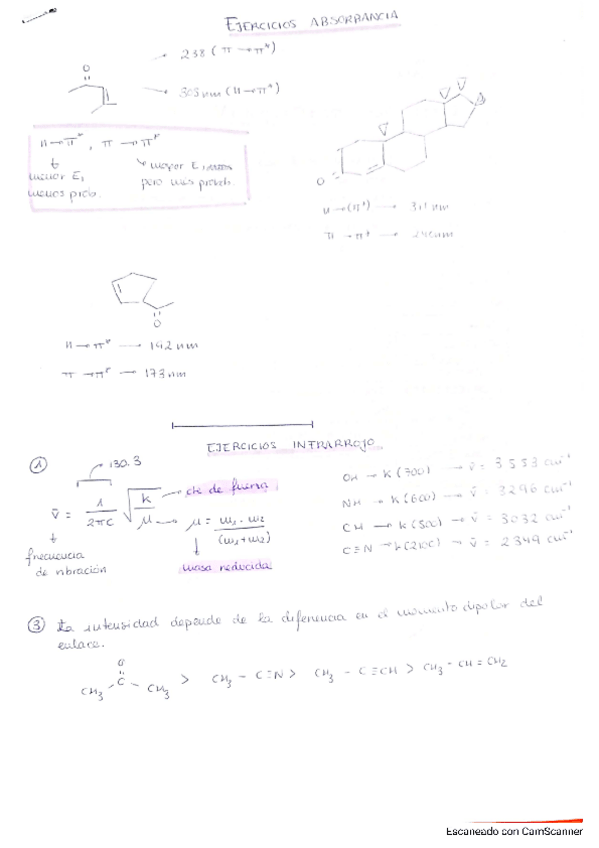 EJERCICIOS ABSORBANCIA
→ 238 (π → π*)
→ 305 nm (n → π*)
O
n → π*, π → π*
menor E, mayor E,
menos prob. pero más probab.
O
n → (π*) → 311 nm
π → π* →
O
n → π* → 192 nm
π → π* → 173 nm
EJERCICIOS INFRARROJO
① → 130.3
ν̄ = 1/2πc √k/μ → cte de fuerza
μ = m₁ · m₂/(m₁+m₂)
frecuencia de vibración
masa reducida
OH → K (700) → ν̄ = 3553 cm⁻¹
NH → K (600) → ν̄ = 3296 cm⁻¹
CH → K (500) → ν̄ = 3032 cm⁻¹
C≡N → k (2100) → ν̄ = 2349 cm⁻¹
③ La intensidad depende de la diferencia en el momento dipolar del
enlace.
O
CH₃ - C - CH₃ > CH₃ - C≡N > CH₃ - C≡CH > CH₃ - CH = CH₂
Escaneado con CamScanner